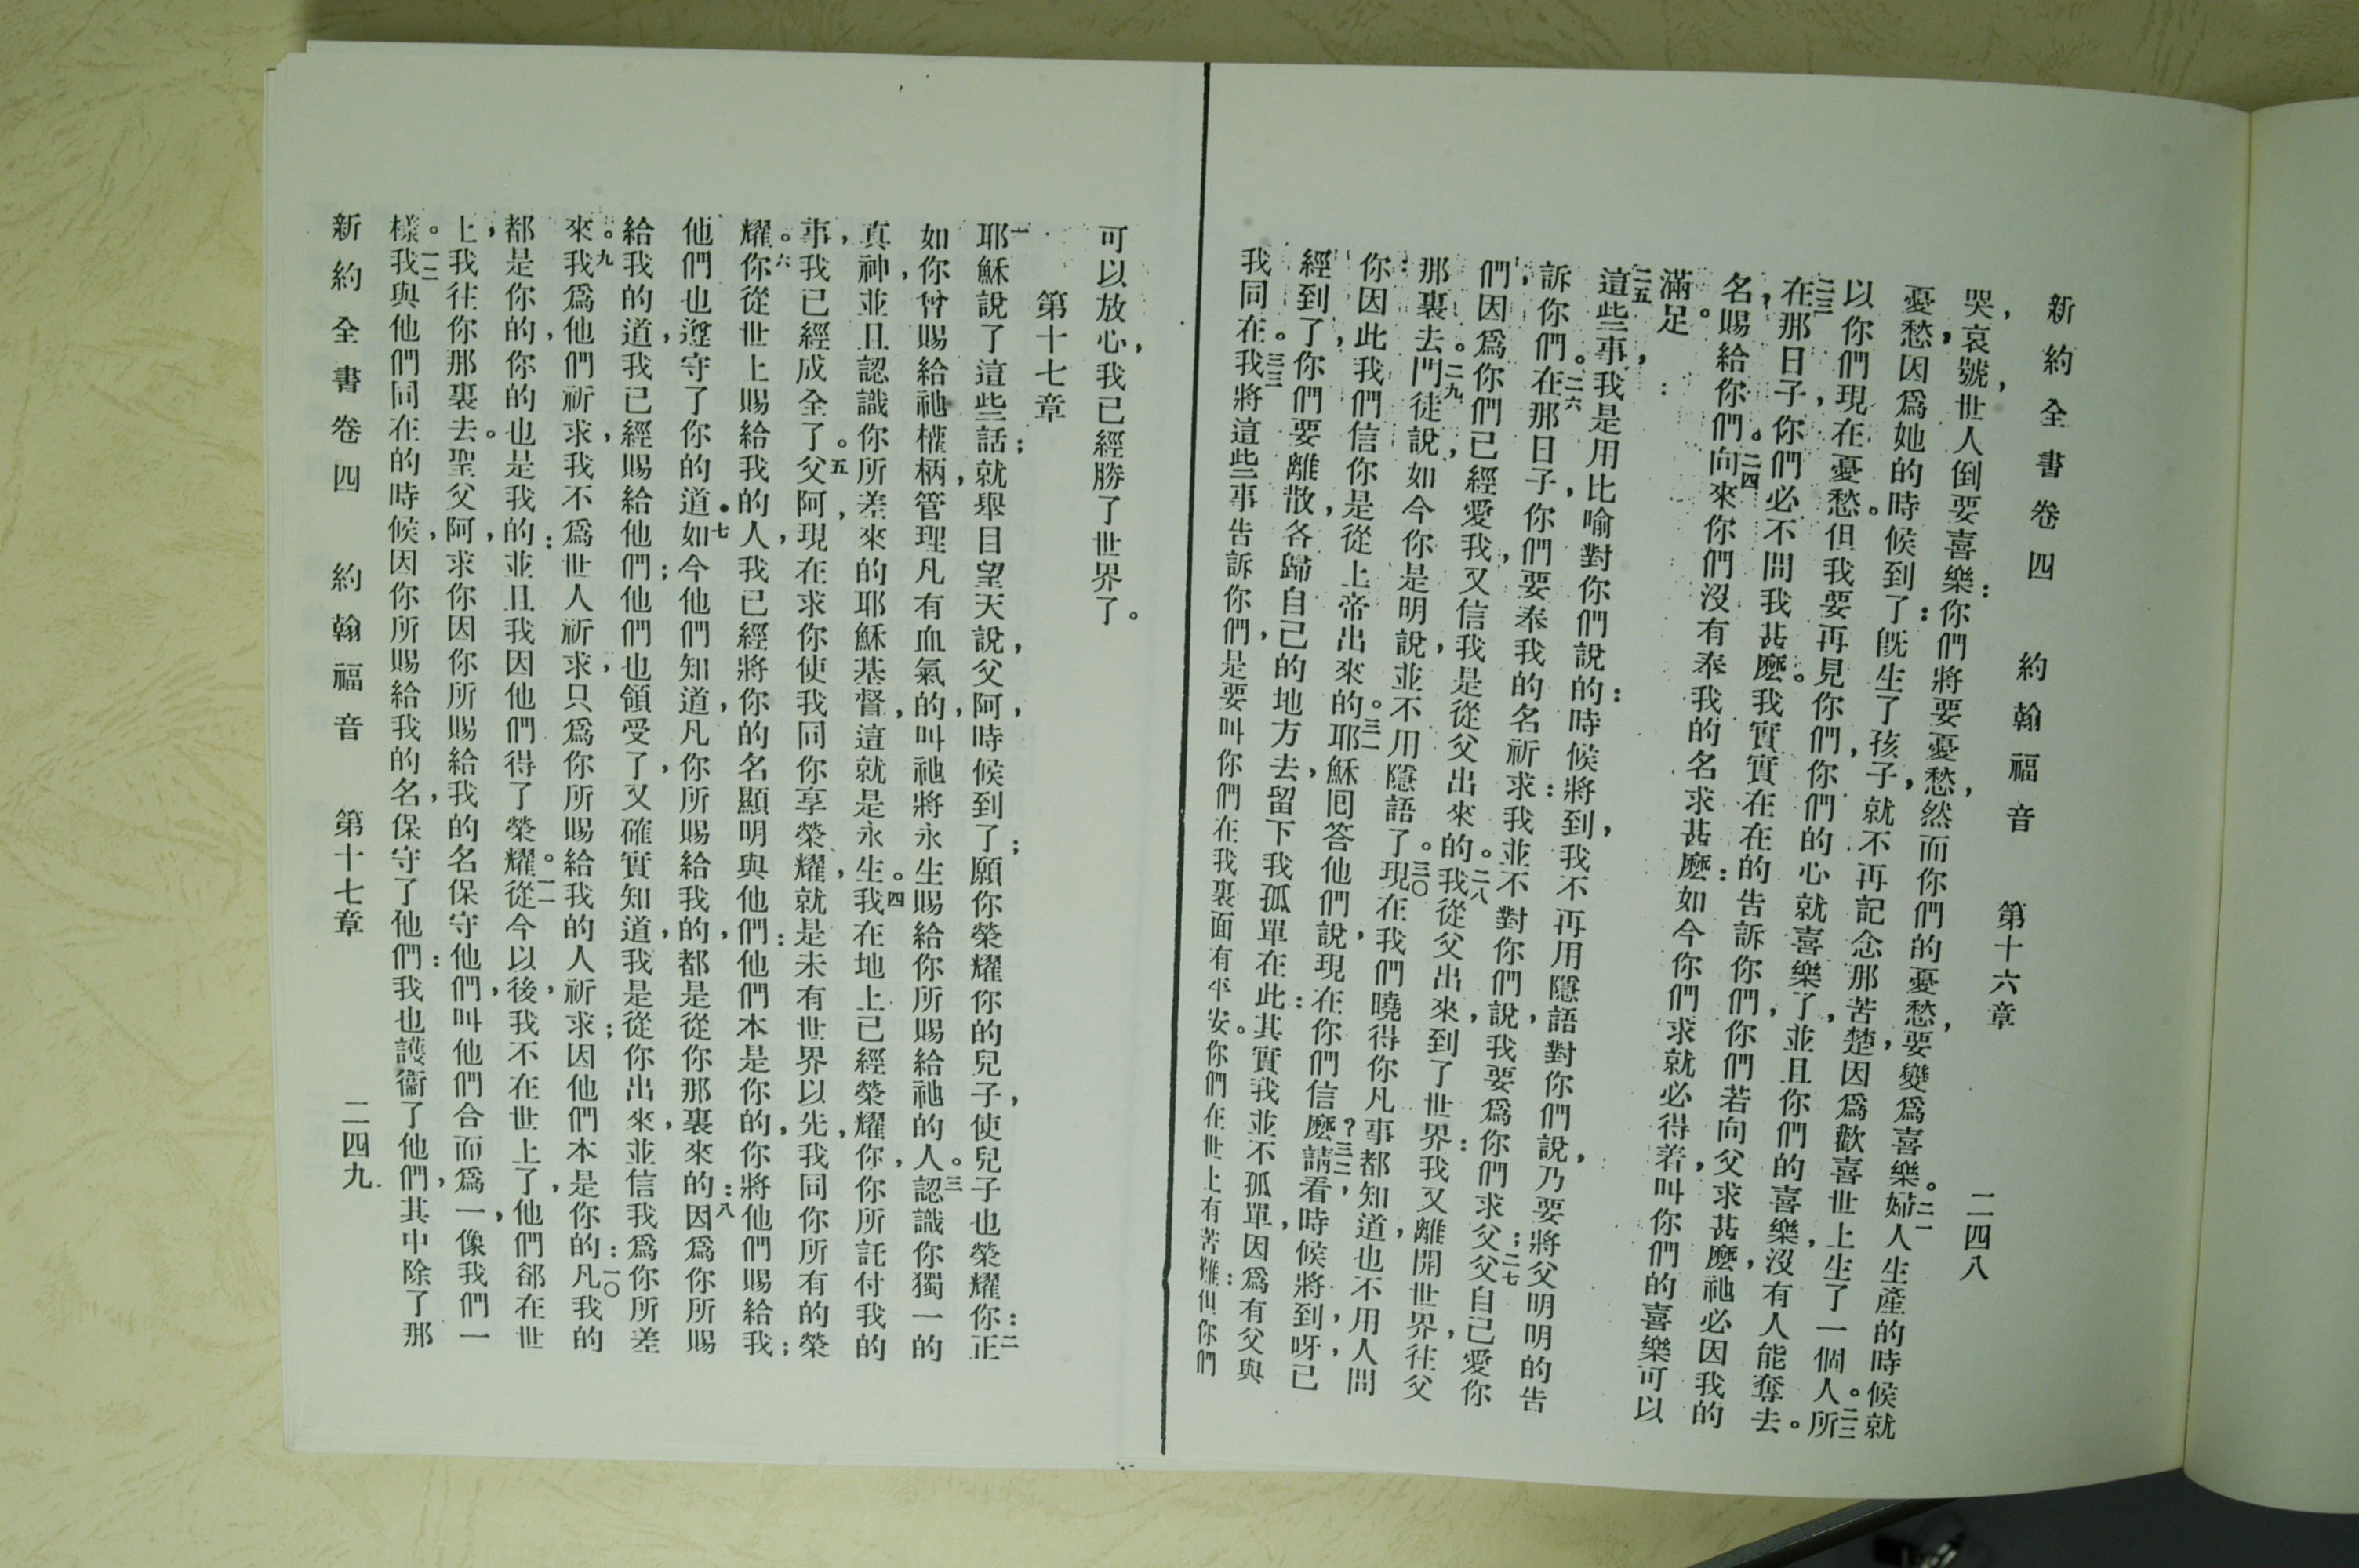 新約全書卷四　約翰福音　第十六章　二四八
哭，哀號，世人倒要喜樂：你們將要憂愁，然而你們的憂愁，要變爲喜樂。二一婦人生產的時候就
憂愁，因爲她的時候到了：旣生了孩子，就不再記念那苦楚，因爲歡喜世上生了一個人。二二所
以你們現在憂愁。但我要再見你們，你們的心就喜樂了，並且你們的喜樂，沒有人能奪去。
二三在那日子，你們必不問我甚麼。我實實在在的告訴你們，你們若向父求甚麼，祂必因我的
名，賜給你們。二四向來你們沒有奉我的名求甚麼：如今你們求就必得着，叫你們的喜樂可以
滿足。
二五這些事，我是用比喻對你們說的：時候將到，我不再用隱語對你們說，乃要將父明明的告
訴你們。二六在那日子，你們要奉我的名祈求：我並不對你們說，我要爲你們求父；二七父自己愛你
們，因爲你們已經愛我，又信我是從父出來的。二八我從父出來，到了世界：我又離開世界，往父
那裏去。二九門徒說，如今你是明說，並不用隱語了。三〇現在我們曉得你凡事都知道，也不用人問
你：因此我們信你是從上帝出來的。三一耶穌囘答他們說，現在你們信麽？三二請看，時候將到，
呀，已
經到了，你們要離散，各歸自己的地方去，留下我孤單在此：其實我並不孤單，因爲有父與
我同在。三三我將這些事告訴你們，是要叫你們在我裏面有平安。你們在世上有苦難：但你們
可以放心，我已經勝了世界了。
第十七章
一耶穌說了這些話；就舉目望天說，父阿，時候到了；願你榮耀你的兒子，使兒子也榮耀你：二正
如你曾賜給祂權柄，管理凡有血氣的，叫祂將永生賜給你所賜給祂的人。三認識你獨一的
真神，並且認識你所差來的耶穌基督，這就是永生。四我在地上已經榮耀你，你所託付我的
事，我已經成全了。五父阿，現在求你使我同你享榮耀，就是未有世界以先，我同你所有的榮
耀。六你從世上賜給我的人，我已經將你的名顯明與他們：他們本是你的，你將他們賜給我；
他們也遵守了你的道。七如今他們知道，凡你所賜給我的，都是從你那裏來的：八因爲你所賜
給我的道，我已經賜給他們；他們也領受了，又確實知道，我是從你出來，並信我爲你所差
來。九我爲他們祈求，我不爲世人祈求，只爲你所賜給我的人祈求；因他們本是你的：一〇凡我的
都是你的，你的也是我的：並且我因他們得了榮耀。一一從今以後，我不在世上了，他們郤在世
上，我往你那裏去。聖父阿，求你因你所賜給我的名保守他們，叫他們合而爲一，像我們一
樣。一二我與他們同在的時候，因你所賜給我的名，保守了他們：我也護衞了他們，其中除了那
新約全書卷四　約翰福音　第十七章　二四九